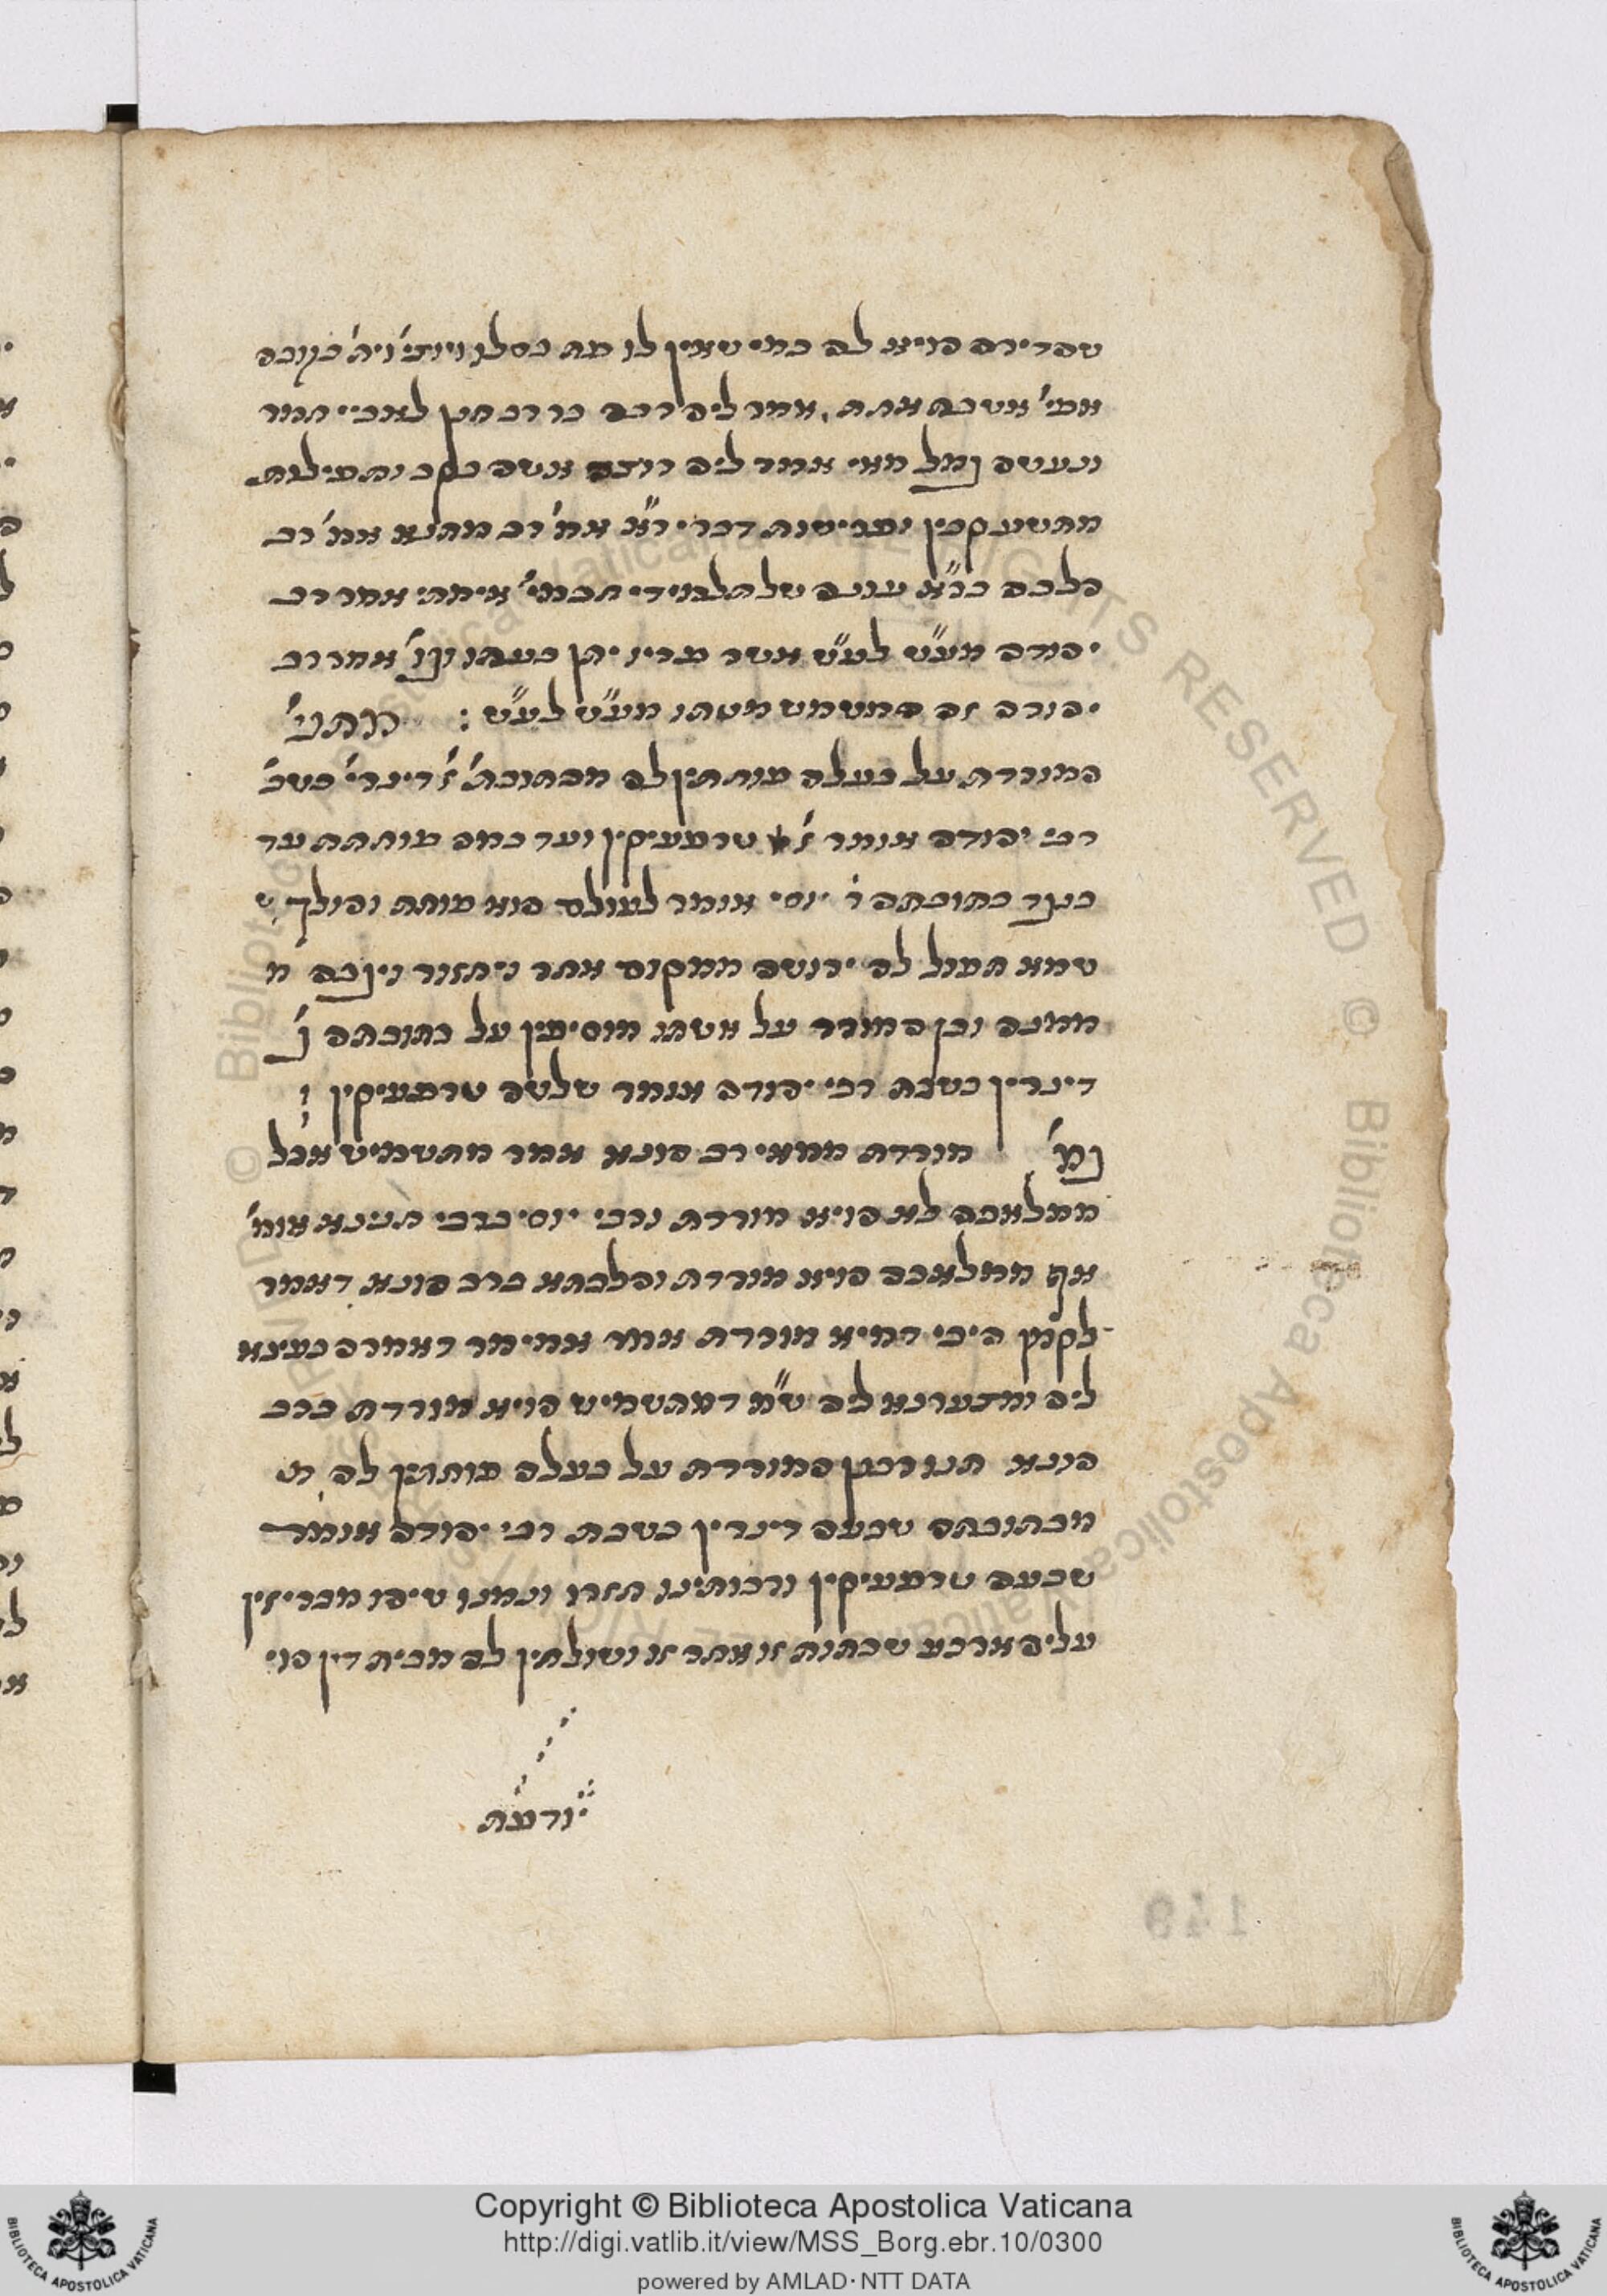 שהדירה הויא לה כמי שאין לו פת בסלו ויותי ויה בנוכה
אמי אשכח אתת, אמר ליה רבה בר רב חנן לאביי תמר
ונעשה גמל מאי אמר ליה רובה אשה בקב ותפילות
מתשעה קבין ופרישות דברי ר״א אמ׳ רב מהנא אמ׳ רב
הלכה כר״א עונה של תלמידי חכמי׳ אימתי אמר רב
יהודה מע״ש לע״ש אשר פריו יתן בעתו וגו׳ אמר רב
יהודה זה המשמש מטתו מע״ש לע״ש : מתני׳
המורדת על בעלה פוחתין לה מכתובת׳ ז׳ דינרי׳ בשב׳
רבי יהודה אומר ז׳ טרפעיקין ועד כמה פוחתת עד
כנגד כתובתה ר׳ יוסי אומר לעולם הוא פוחת והולך
שמא תפול לה ירושה ממקום אחר ויחזור ויגבה מ
ממנה וכן המורד על אשתו מוסיפין על כתובתה ג׳
דינרין בשבת רבי יהודה אומר שלשה טרפעיקין :
גמ׳ מורדת ממאי רב הונא אמר מתשמיש אבל
ממלאכה לא הויא מורדת ורבי יוסי ברבי חנינא אומ׳
אף ממלאכה הויא מורדת והלכתא כרב הונא דאמר
לקמן היכי דמיא מורדת אמר אמימר דאמרה בעינא
ליה ומצערנא ליה ש״מ דמתשמיש הויא מורדת כרב
הונא תנו רבנן המורדת על בעלה פוחתין לה
מכתובתה שבעה דינרין בשבת רבי יהודה אומר
שבעה טרפעיקין ורבותינו חזרו ונמנו שיהו מכריזין
עליה ארבע שבתות זו אחר זו ושולחין לה מבית דין הוי
ודעת
Copyright © Biblioteca Apostolica Vaticana
http://digi.vatlib.it/view/MSS_Borg.ebr.10/0300
powered by AMLAD · NTT DATA